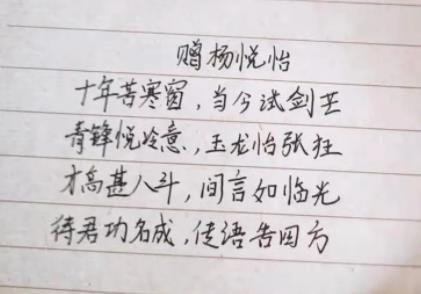 赠杨悦怡
十年苦寒窗，当今试剑芒
青锋悦冷意，玉龙怡张狂
才高甚八斗，间言如临光
待君功名成，传语告四方